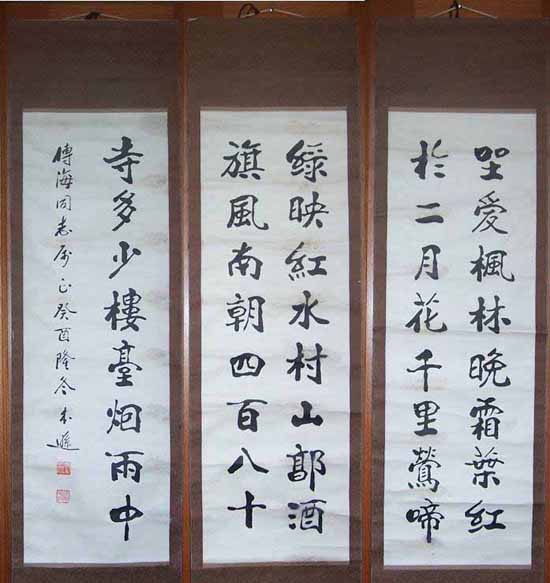 坐愛楓林晚霜葉紅
於二月花千里鶯啼
綠映紅水村山郭酒
旗風南朝四百八十
寺多少樓臺烟雨中
海同志属正癸酉隆冬